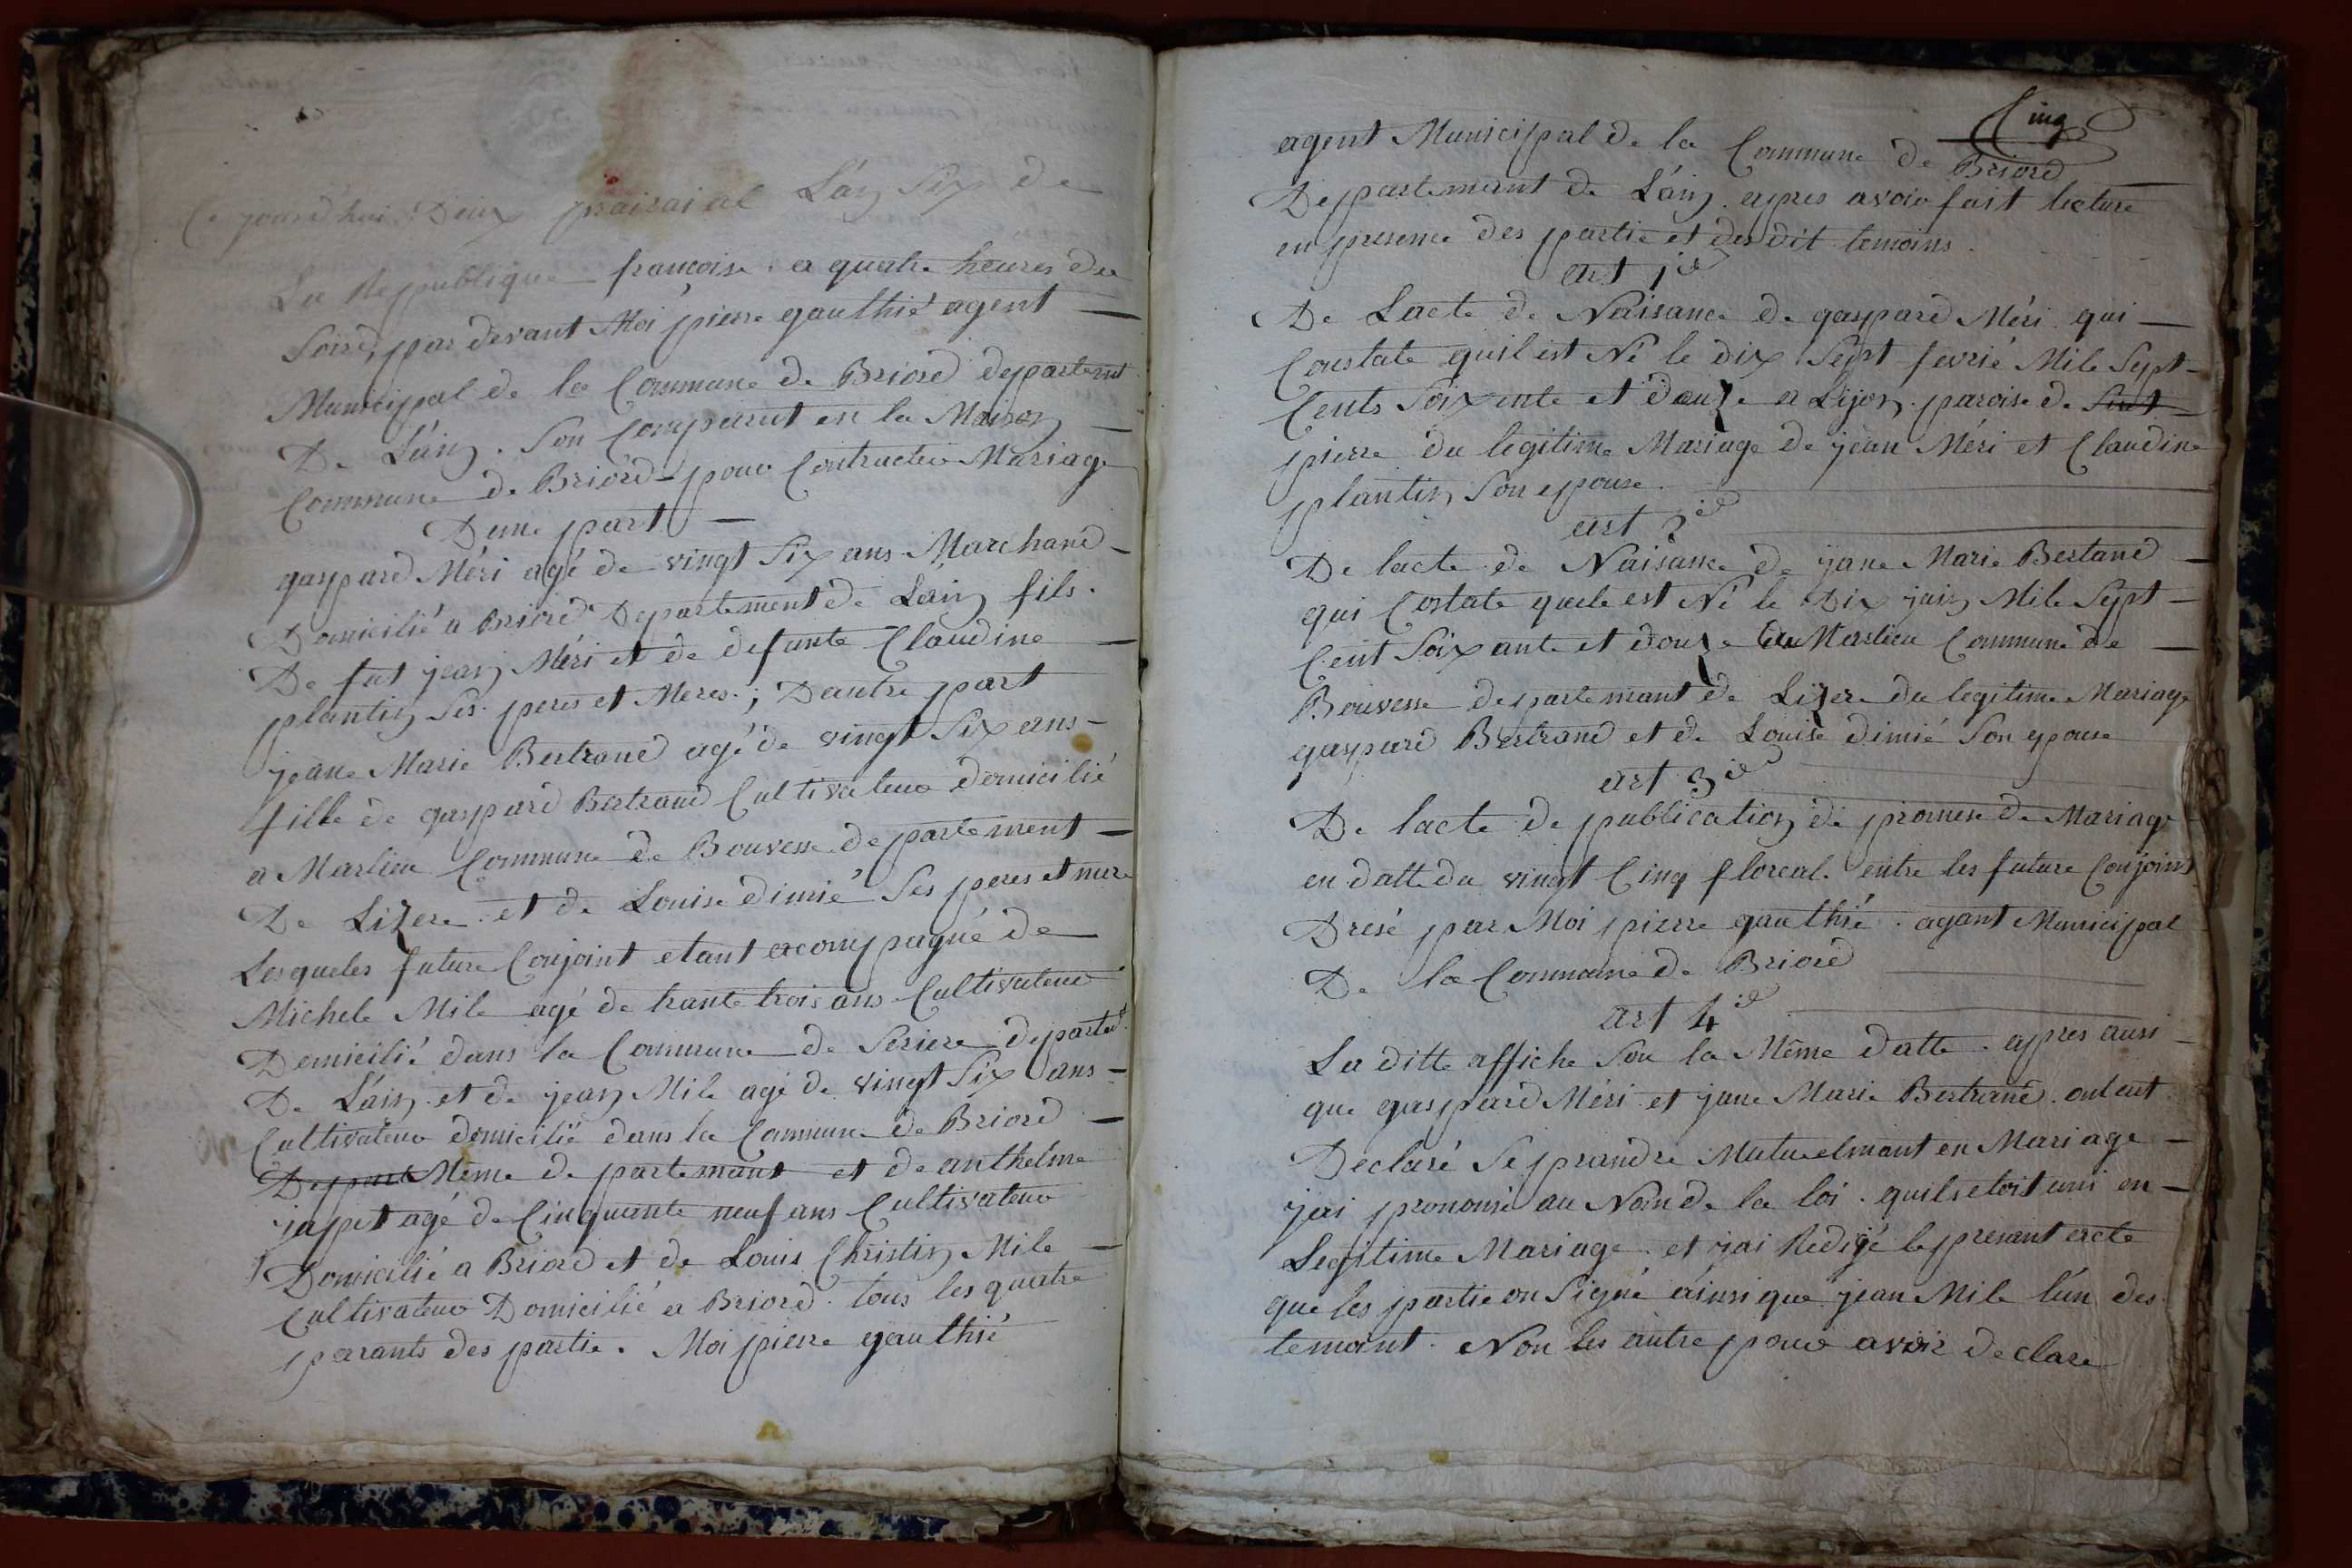 Ce jourd'hui Deux prairaial L'an Six de
La Republique francoise a quatre heures du
Soird, par devant Moi pierre gauthié agent
Municipal de la Commune de Briord departemt
De L'ain. Son Comparut en la Maison
Commune de Briord pour Contracter Mariage
Dune part
gaspard Méri agé de vingt Six ans Marchand
Domicilié a Briord Departement de L'ain fils
De fut jean Méri et de defunte Claudine
plantin Ses peres et Meres; Dautre part
jeane Marie Bertrand agé de vingt Six ans
fille de gaspard Bertrand Cultivateur domicilié
a Marlieu Commune de Bouvesse departement
De Lizere et de Louise dimié Ses peres et mere
Lesqueles future Conjoint etant acompagné de
Michele Mile agé de trante trois ans Cultivateur
Domicilié dans la Commune de Seriere departet
De L'ain et de jean Mile agé de vingt Six ans
Cultivateur domicilié dans la Commune de Briord
Depart Meme departemant et de anthelme
japet agé de Cinquante neuf ans Cultivateur
Domicilié a Briord et de Louis Christin Mile
Cultivateur Domicilié a Briord tous les quatre
parants des partie. Moi pierre gauthié
Cinq
agent Municipal de la Commune de Briord
Departemant de L'ain apres avoir fait lecture
en presence des partie et des dit temoins
art 1er
De Lacte de Naisance de gaspard Méri qui
Constate quil est Né le dix Sept fevrié Mile Sept
Cents Soixente et douze a Lijon paroise de Sint
pierre du legitime Mariage de jean Méri et Claudine
plantin Son epouse
art 2e
De lacte de Naisance de jane Marie Bertand
qui Costate quele est Né le Dix juin Mile Sept
Cent Soixante et douze au Marlieu Commune de
Bouvesse departemant de Lizere du legitime Mariage
gaspard Bertrand et de Louise dimié Son epouse
art 3e
De lacte de publication de promese de Mariage
en datte du vingt Cinq floreal entre les future Conjoins
Dresé par Moi pierre gauthié agant Municipal
De la Commune de Briord
art 4e
La ditte affiche Sou la Même datte apres ausi
que gaspard Méri et jane Marie Bertrand out eut
Declaré Se prandre Mutuelmant en Mariage
jai prononsé au Nom de la loi quils etoit uni en
Legitime Mariage et jai Redigé le presant acte
que les partie on Signé áinsi que jean Mile l'un des
temoint. Non les autre pour avoir declare